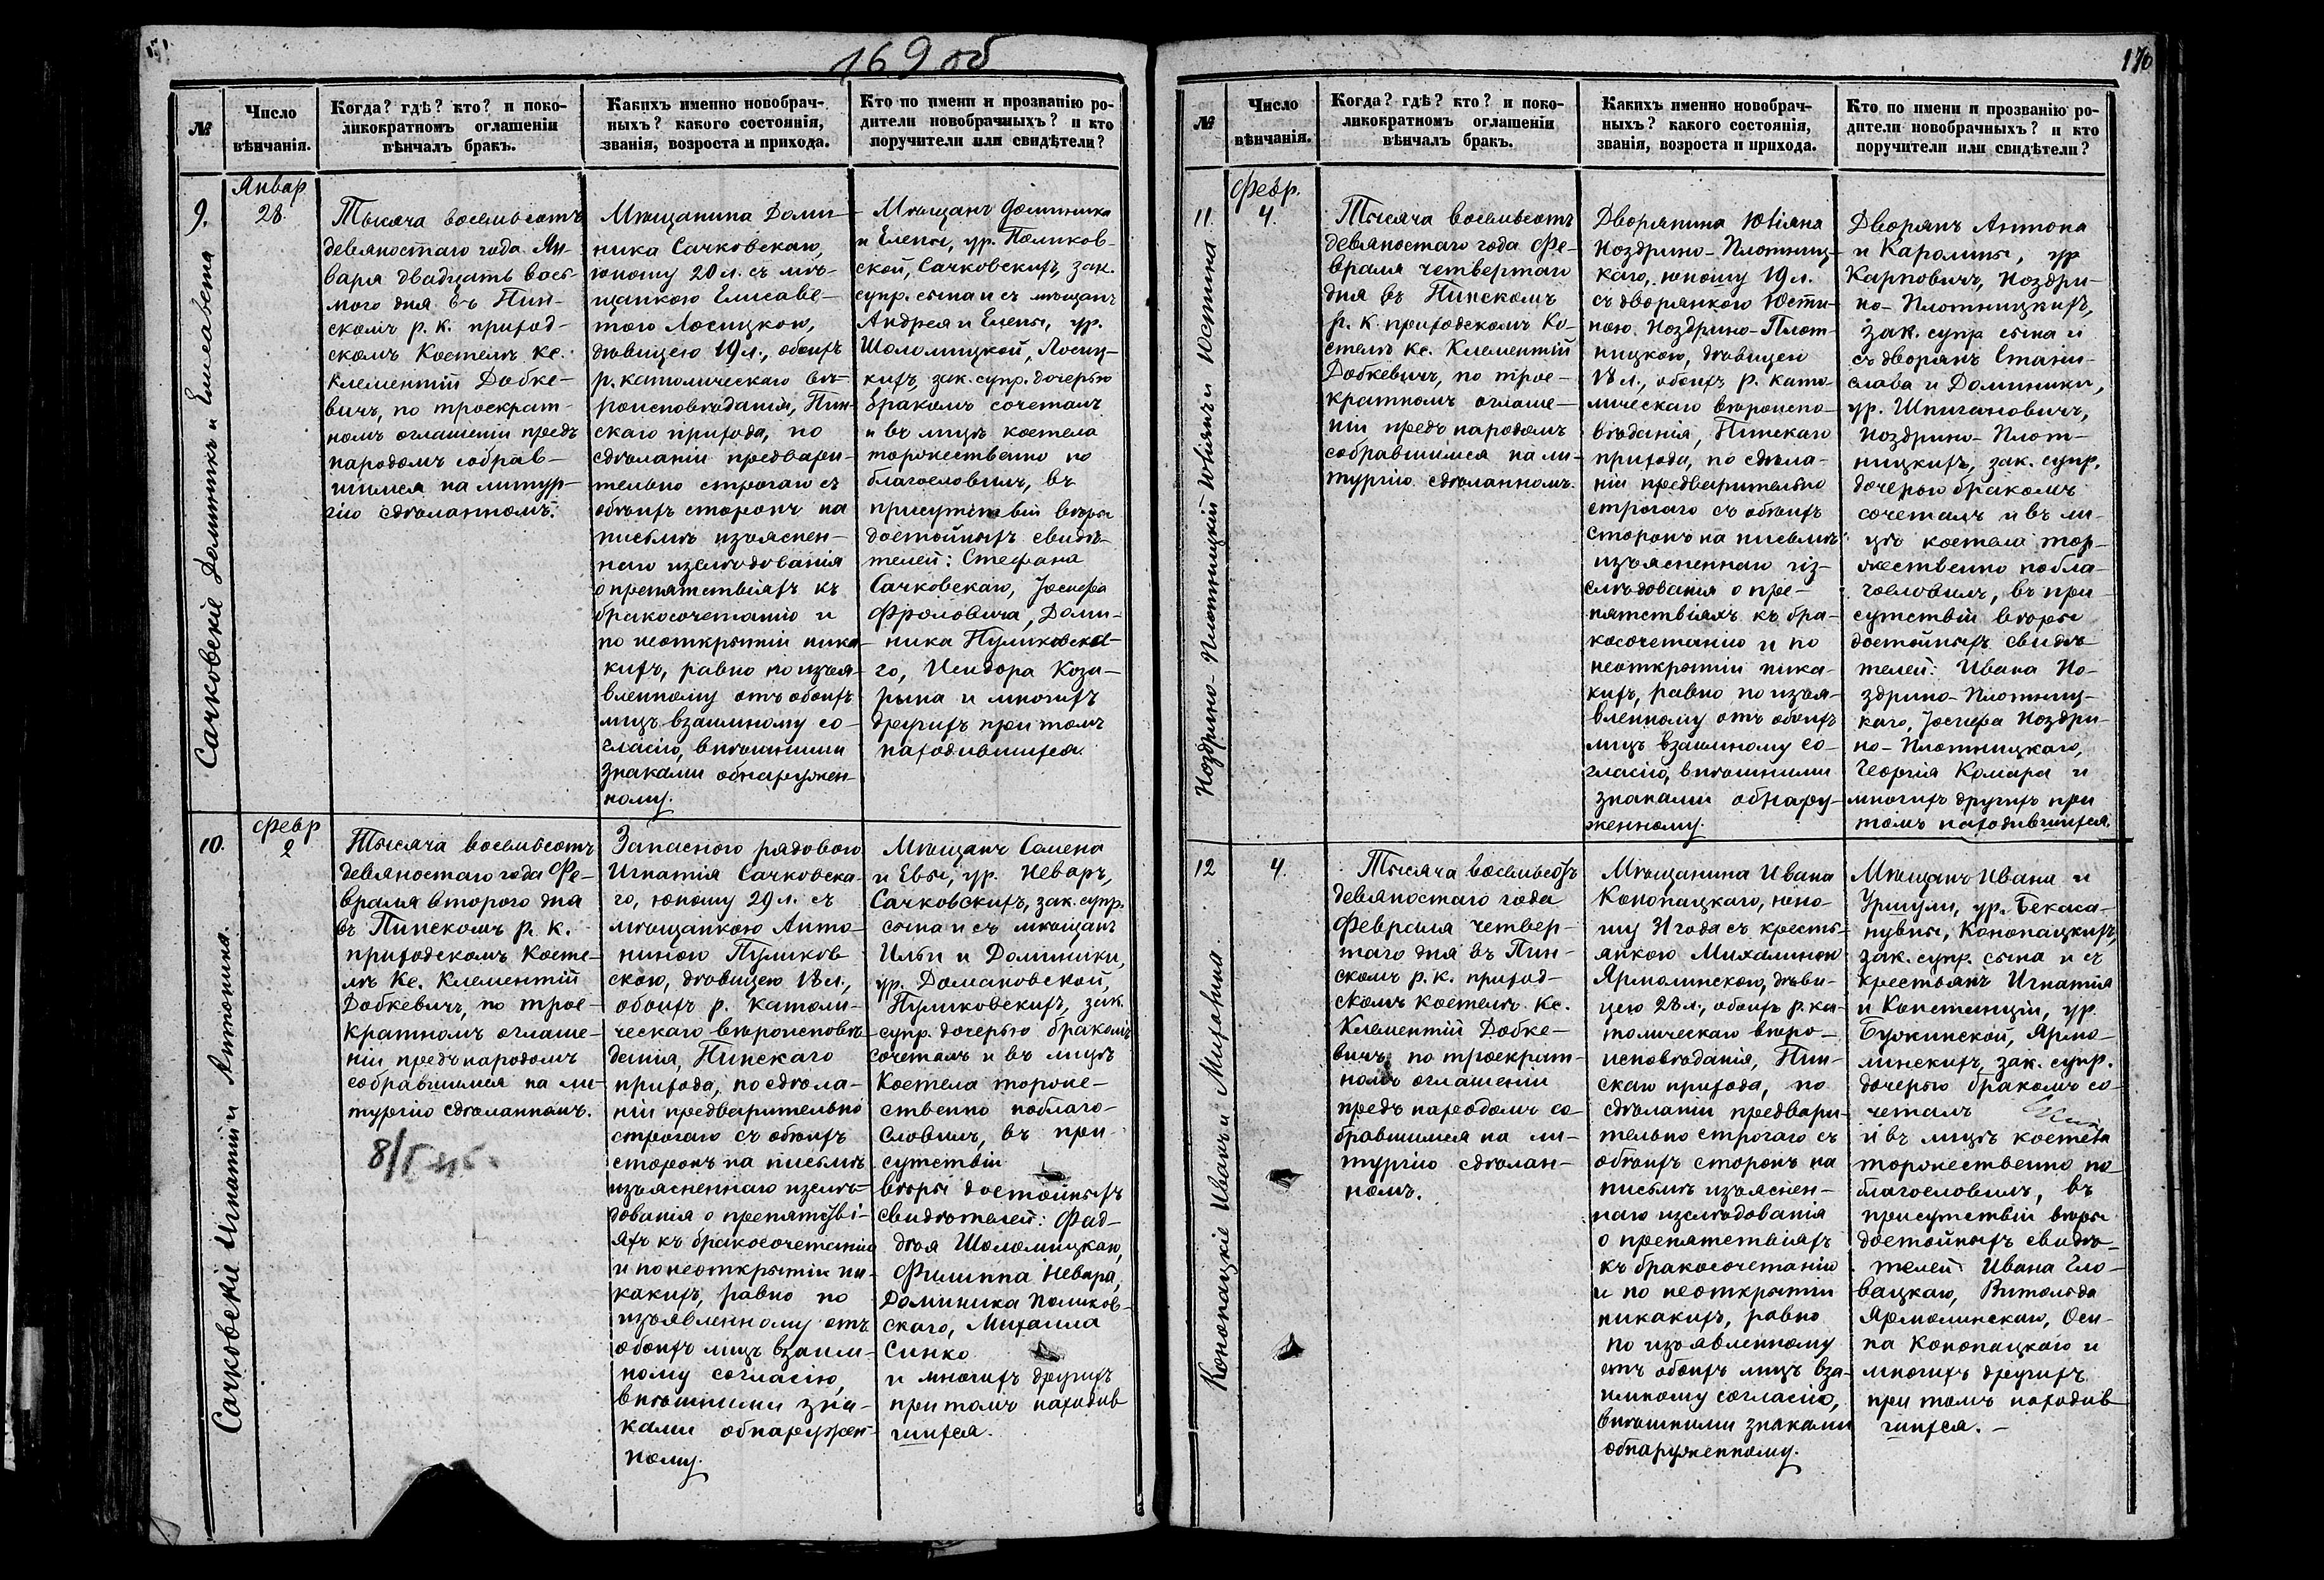 169 об
№
Число
вѣнчанія.
Когда? гдѣ? кто? и поко-
ликократномъ оглашеніи
вѣнчалъ бракъ.
Какихъ именно новобрач-
ныхъ? какого состоянія,
званія, возроста и прихода.
Кто по имени и прозванію ро-
дители новобрачныхъ? и кто
поручители или свидѣтели?
9.
Сачковскіе Доминикъ и Елисавета
Январ
28.
Тысяча восемьсотъ
девяностаго года Ян-
варя двадцать вось-
мого дня въ Пин-
скомъ р. к. приход-
скомъ Костелѣ Кс.
Клементій Добке-
вичъ, по троекрат-
номъ оглашеніи предъ
народомъ собрав-
шимся на литур-
гію сдѣланномъ.
Мѣщанина Доми-
ника Сачковскаго,
юношу 20 л. съ мѣ-
щанкою Елисаве-
тою Лосицкою,
дѣвицею 19 л., обоихъ
р. католическаго вѣ-
роисповѣданія, Пин-
скаго прихода, по
сдѣланіи предвари-
тельно строгаго съ
обѣихъ сторонъ на
письмѣ изъяснен-
наго изслѣдованія
о препятствіяхъ къ
бракосочетанію и
по неоткрытіи ника-
кихъ, равно по изъя-
вленному отъ обоихъ
лицъ взаимному со-
гласію, внѣшними
знаками обнаружен-
ному.
Мѣщанъ Доминика
и Елены, ур. Поликов-
ской, Сачковскихъ, зак.
супр. сына и съ мѣщанъ
Андрея и Елены, ур.
Шоломицкой, Лосиц-
кихъ, зак. супр. дочерью
бракомъ сочеталъ
и въ лицѣ костела
торжественно по
благословилъ, въ
присутствіи вѣры
достойныхъ свидѣ-
телей: Стефана
Сачковскаго, Іосифа
Фроловича, Доми-
ника Пуликовска-
го, Исидора Коза-
рына и многихъ
другихъ при томъ
находившихся.
10.
Сачковскіе Игнатій и Антонина.
Февр
2
Тысяча восемьсотъ
девяностаго года Фе-
враля второго дня
въ Пинскомъ р. к.
приходскомъ Косте-
лѣ Кс. Клементій
Добкевичъ, по трое-
кратномъ оглаше-
ніи предъ народомъ
собравшимся на ли-
тургію сдѣланномъ.
Запасного рядового
Игнатія Сачковска-
го, юношу 29 л. съ
мѣщанкою Анто-
ниною Пуликов
скою, дѣвицею 18 л.,
обоихъ р. католи-
ческаго вѣроисповѣ-
данія, Пинскаго
прихода, по сдѣла-
ніи предварительно
строгаго съ обѣихъ
сторонъ на письмѣ
изъясненнаго изслѣ-
дованія о препятстві-
яхъ къ бракосочетанію
и по неоткрытіи ни-
какихъ, равно по
изъявленному отъ
обоихъ лицъ взаим-
ному согласію,
внѣшними зна-
ками обнаружен-
ному.
Мѣщанъ Семена
и Евы, ур. Неваръ,
Сачковскихъ, зак. супр.
сына и съ мѣщанъ
Ильи и Доминики,
ур. Домановской,
Пуликовскихъ, зак.
супр. дочерью бракомъ
сочеталъ и въ лицѣ
Костела торже-
ственно поблаго-
словилъ, въ при-
сутствіи
вѣры достойныхъ
свидѣтелей: Фад-
дѣя Шоломицкаго,
Филиппа Невара,
Доминика Поликов-
скаго, Михаила
Синко
и многихъ другихъ
при томъ находив
шихся.
170
№
Число
вѣнчанія.
Когда? гдѣ? кто? и поко-
ликократномъ оглашеніи
вѣнчалъ бракъ.
Какихъ именно новобрач-
ныхъ? какого состоянія,
званія, возроста и прихода.
Кто по имени и прозванію ро-
дители новобрачныхъ? и кто
поручители или свидѣтели?
11.
Ноздрино-Плотницкій Юліянъ и Юстина
Февр.
4.
Тысяча восемьсотъ
девяностаго года Фе-
враля четвертаго
дня въ Пинскомъ
р. к. приходскомъ Ко-
стелѣ Кс. Клементій
Добкевичъ, по трое-
кратномъ оглаше-
ніи предъ народомъ
собравшимся на ли-
тургію сдѣланномъ.
Дворянина Юліяна
Ноздрино-Плотниц-
каго, юношу 19 л.
съ дворянкою Юсти-
ною Ноздрино-Плот-
ницкою, дѣвицею
18 л., обоихъ р. като-
лическаго вѣроиспо-
вѣданія, Пинскаго
прихода, по сдѣла-
ніи предварительно
строгаго съ обѣихъ
сторонъ на письмѣ
изъясненнаго из-
слѣдованія о пре-
пятствіяхъ къ бра-
косочетанію и по
неоткрытіи ника-
кихъ, равно по изъя-
вленному отъ обоихъ
лицъ взаимному со-
гласію, внѣшними
знаками обнару-
женному.
Дворянъ Антона
и Каролины, ур
Карповичъ, Ноздри-
но-Плотницкихъ,
зак. супр сына и
съ дворянъ Стани-
слава и Доминики,
ур. Шпигановичъ,
Ноздрино-Плот-
ницкихъ, зак. супр.
дочерью бракомъ
сочеталъ и въ ли-
цѣ костела тор-
жественно побла-
гословилъ, въ при-
сутствіи вѣры
достойныхъ свидѣ-
телей: Ивана Но-
здрино-Плотниц-
каго, Іосифа Ноздри-
но-Плотницкаго,
Георгія Комара и
многихъ другихъ при
томъ находившихся.
12
Конопацкіе Иванъ и Михалина.
4.
Тысяча восемьсотъ
девяностаго года
Февраля четвер-
таго дня въ Пин-
скомъ р. к. приход-
скомъ костелѣ Кс.
Клементій Добке-
вичъ по троекрат-
номъ оглашеніи
предъ народомъ со-
бравшимся на ли-
тургію сдѣлан-
номъ.
Мѣщанина Ивана
Конопацкаго, юно-
шу 31 года съ кресть-
янкою Михалиною
Ярмолинскою, дѣви-
цею 28 л., обоихъ р. ка-
толическаго вѣро-
исповѣданія, Пин-
скаго прихода, по
сдѣланіи предвари-
тельно строгаго съ
обѣихъ сторонъ на
письмѣ изъяснен-
наго изслѣдованія
о препятствіяхъ
къ бракосочетанію
и по неоткрытіи
никакихъ, равно
по изъявленному
отъ обоихъ лицъ вза-
имному согласію,
внѣшними знаками
обнаруженному.
Мѣщанъ Ивана и
Уршули, ур.
Конопацкихъ,
зак. супр. сына и съ
крестьянъ Игнатія
и Констанціи, ур.
Бужинской, Ярмо-
линскихъ, зак. супр.
дочерью бракомъ со-
четалъ
и въ лицѣ костела
торжественно по-
благословилъ, въ
присутствіи вѣры
достойныхъ свидѣ-
телей Ивана Гло-
вацкаго, Витольда
Ярмолинскаго, Оси-
па Конопацкаго и
многихъ другихъ
при томъ находив
шихся. -